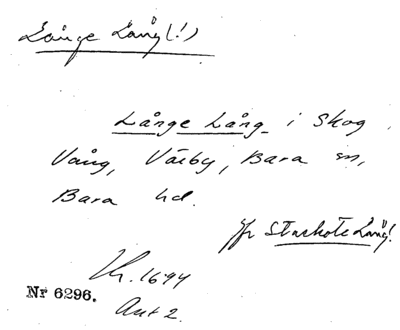 Långe Lång(!)
Långe Lång i Skog
Vång, Värby, Bara sn,
Bara hd.
Jfr Starkote Lång!
Kr. 1694
Nr 6296.
Ant 2.